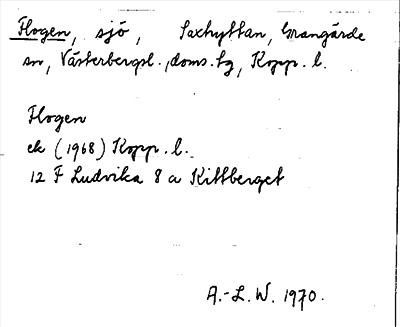 Flogen, sjö, Saxhyttan, Grangärde
sn, Västerbergsl., doms. tg, Kopp. l.
Flogen
ek (1968) Kopp. l.
12 F Ludvika 8 a Kittberget
A.-L. W. 1970.